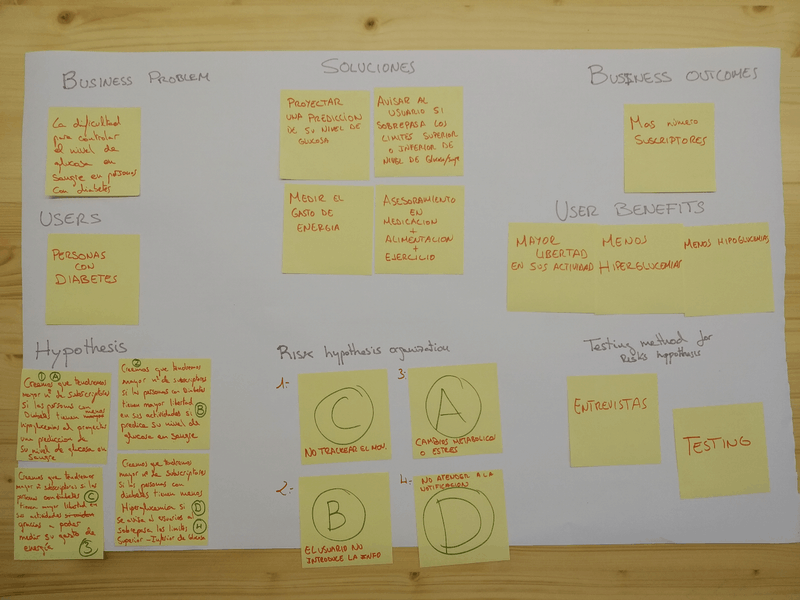 BUSINESS PROBLEM
La dificultad
para controlar
el nivel de
glucosa en
sangre en personas
con diabetes
USERS
PERSONAS
CON
DIABETES
SOLUCIONES
PROYECTAR
UNA PREDICCION
DE SU NIVEL DE
GLUCOSA
AVISAR AL
USUARIO SI
SOBREPASA LOS
LIMITES SUPERIOR
O INFERIOR DE
NIVEL DE GLUCOSA
MEDIR EL
GASTO DE
ENERGIA
ASESORAMIENTO
EN
MEDICACION
+
ALIMENTACION
+
EJERCICIO
BUSINESS OUTCOMES
MAS NÚMERO
SUSCRIPTORES
USER BENEFITS
MAYOR
LIBERTAD
EN SUS ACTIVIDAD
MENOS
HIPERGLUCEMIAS
MENOS HIPOGLUCEMIAS
Hypothesis
1 A
Creemos que tendremos
mayor nº de subscriptores
si las personas con
Diabetes tienen menos
hipoglucemias al proyectar
una prediccion de
su nivel de glucosa en
sangre
2
Creemos que tendremos
mayor nº de subscriptores
si las personas con diabetes
tienen mayor libertad
en sus actividades si B
predice su nivel de
glucosa en sangre
Creemos que tendremos
mayor nº subscriptores si las
personas con diabetes C
tienen mayor libertad en
sus actividades
gracias a poder
medir su gasto de
energía 3
Creemos que tendremos
mayor nº de subscriptores
Si las personas con
diabetes tienen menos
Hiperglucemia si D
se avisa al usuario al
sobrepasa los limites
Superior-Inferior de
Risk hypothesis organization
1.-
C
NO TRACKEAR EL MOV.
2.-
B
EL USUARIO NO
INTRODUCE LA INFO
3.-
A
CAMBIOS METABOLICOS
O ESTRES
4.-
NO ATENDER A LA
NOTIFICACION
D
Testing method for
Risks hyppothesis
ENTREVISTAS
TESTING